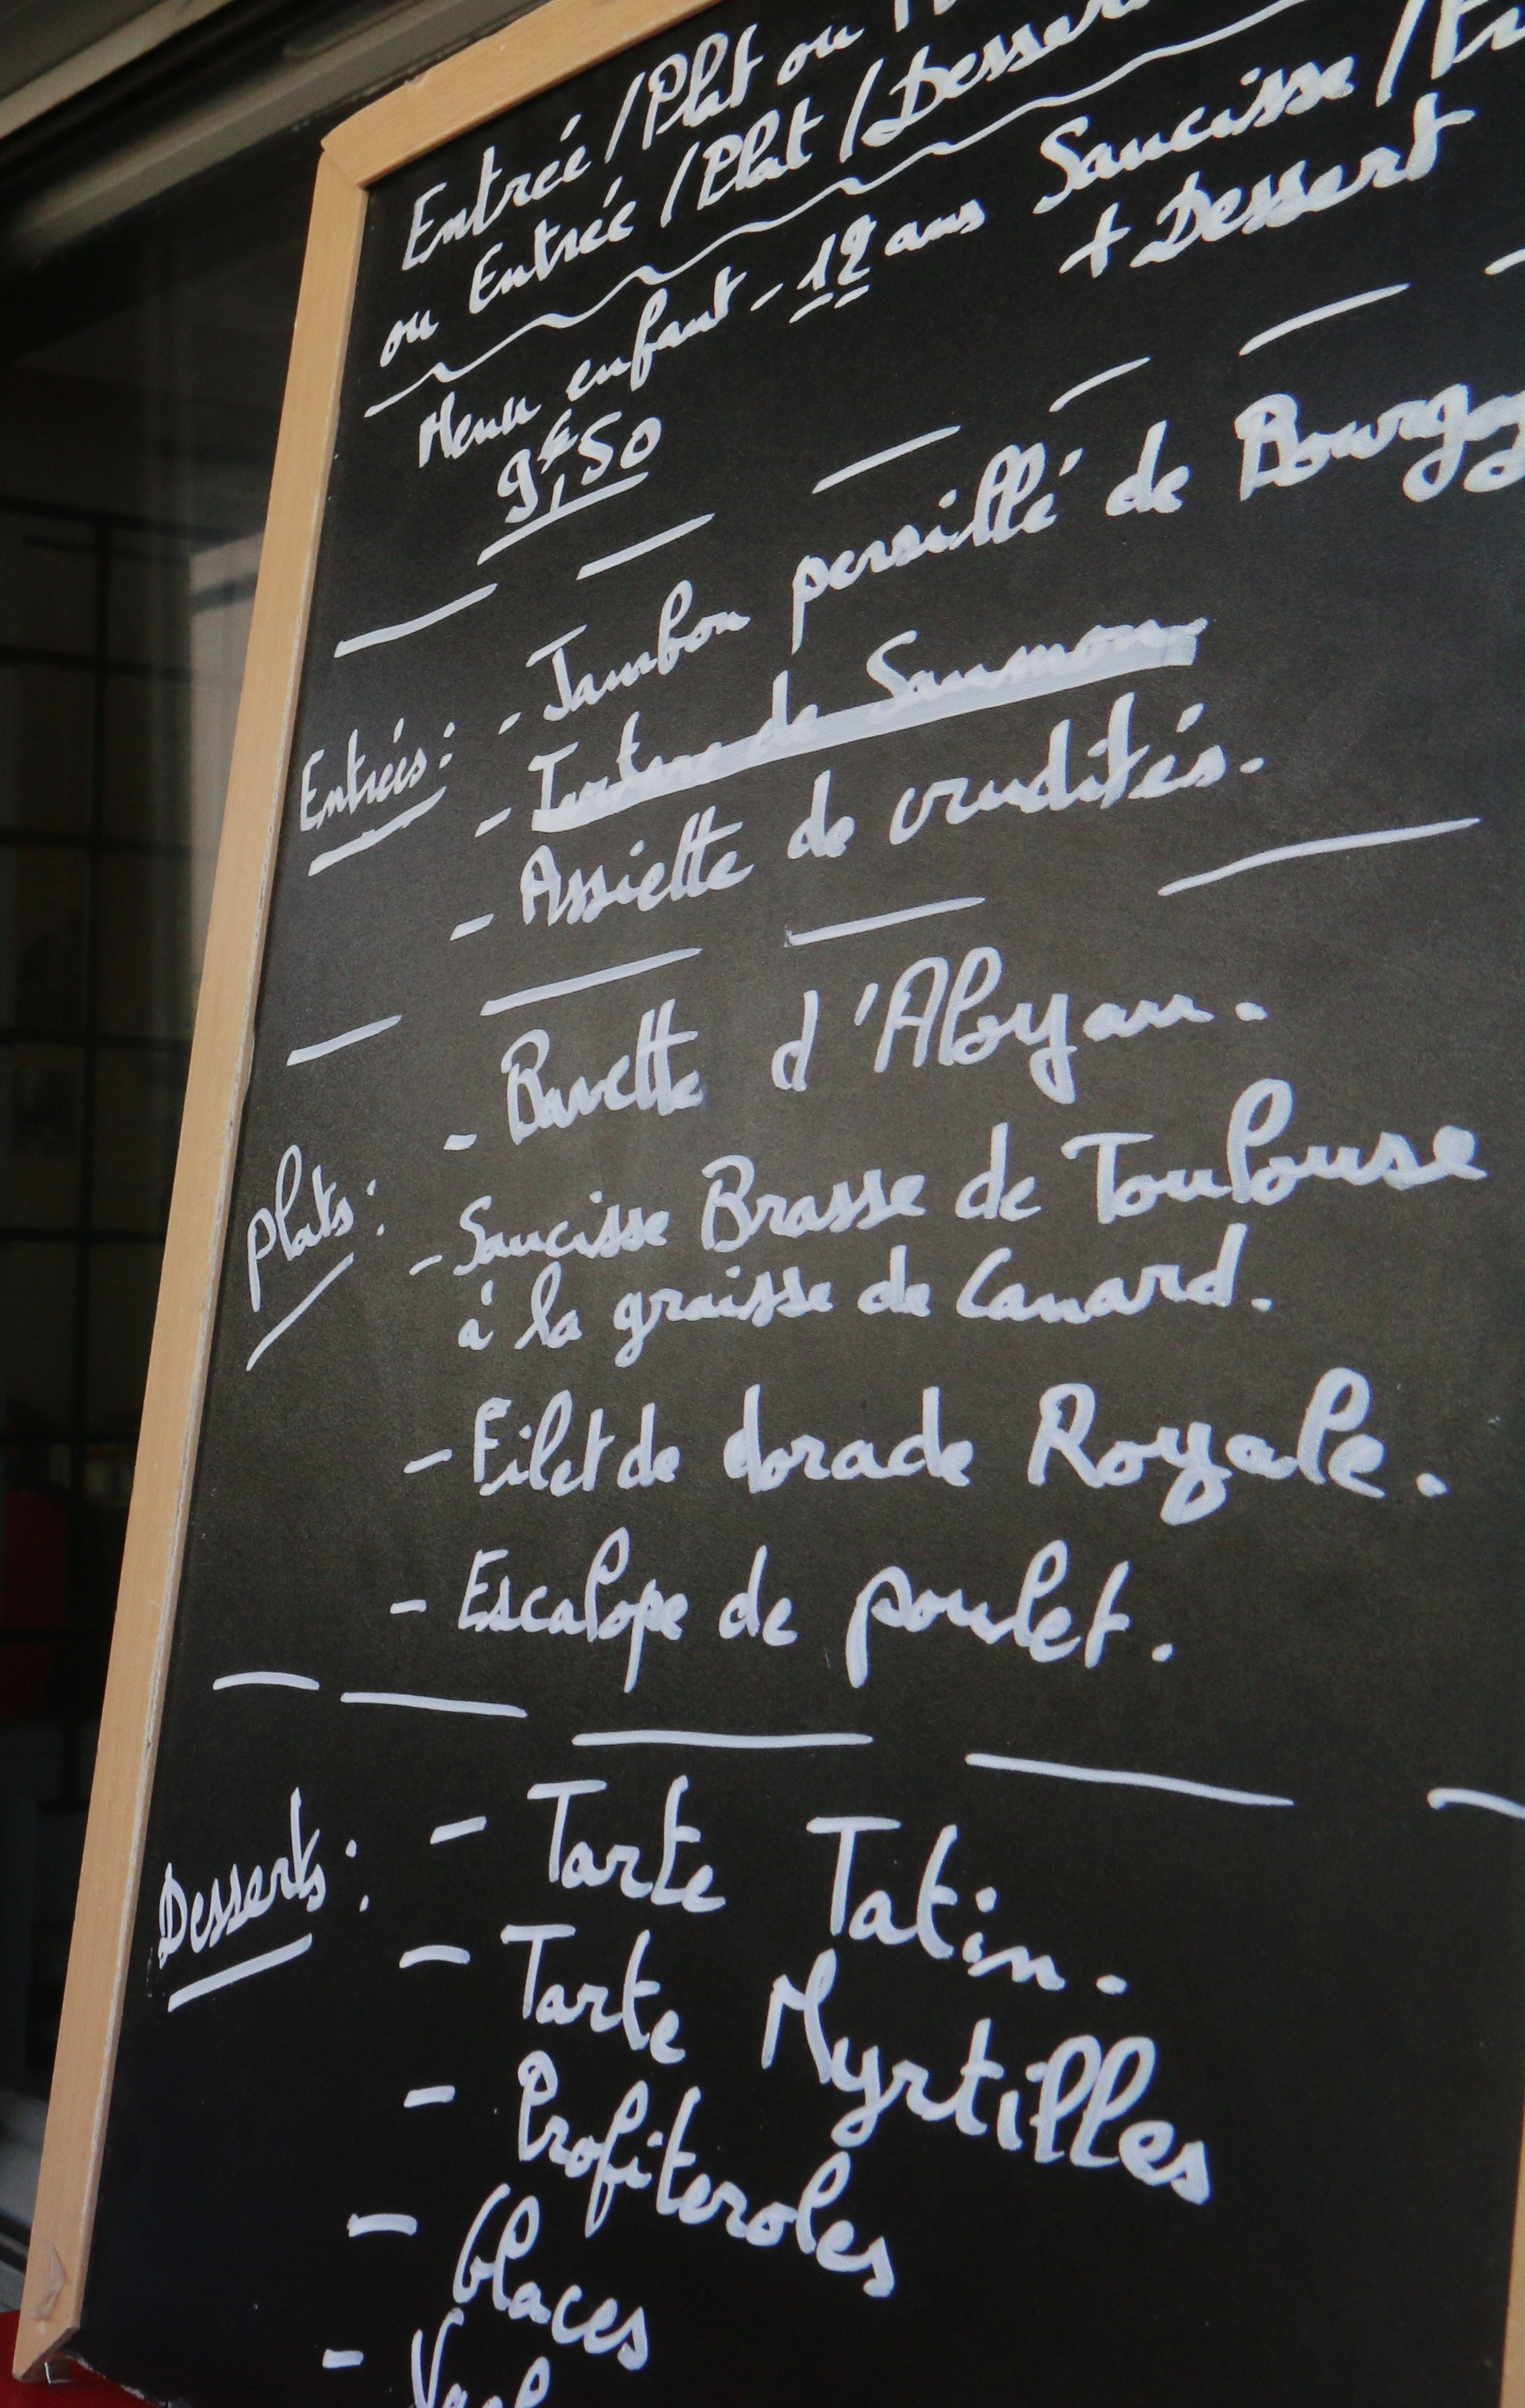 Entrée / Plat ou
ou Entrée / Plat / Dessert
Menu enfant - 12 ans Saucisse /
+ Dessert
9€,50
Entrées : - Jambon persillé de Bourgog
- Tartare de Saumon
- Assiette de crudités.
Plats : - Bavette d'Aloyau.
- Saucisse Brasse de Toulouse
à la graisse de Canard.
- Filet de dorade Royale.
- Escalope de poulet.
Desserts : - Tarte Tatin.
- Tarte Myrtilles
- Profiteroles
- Glaces
-